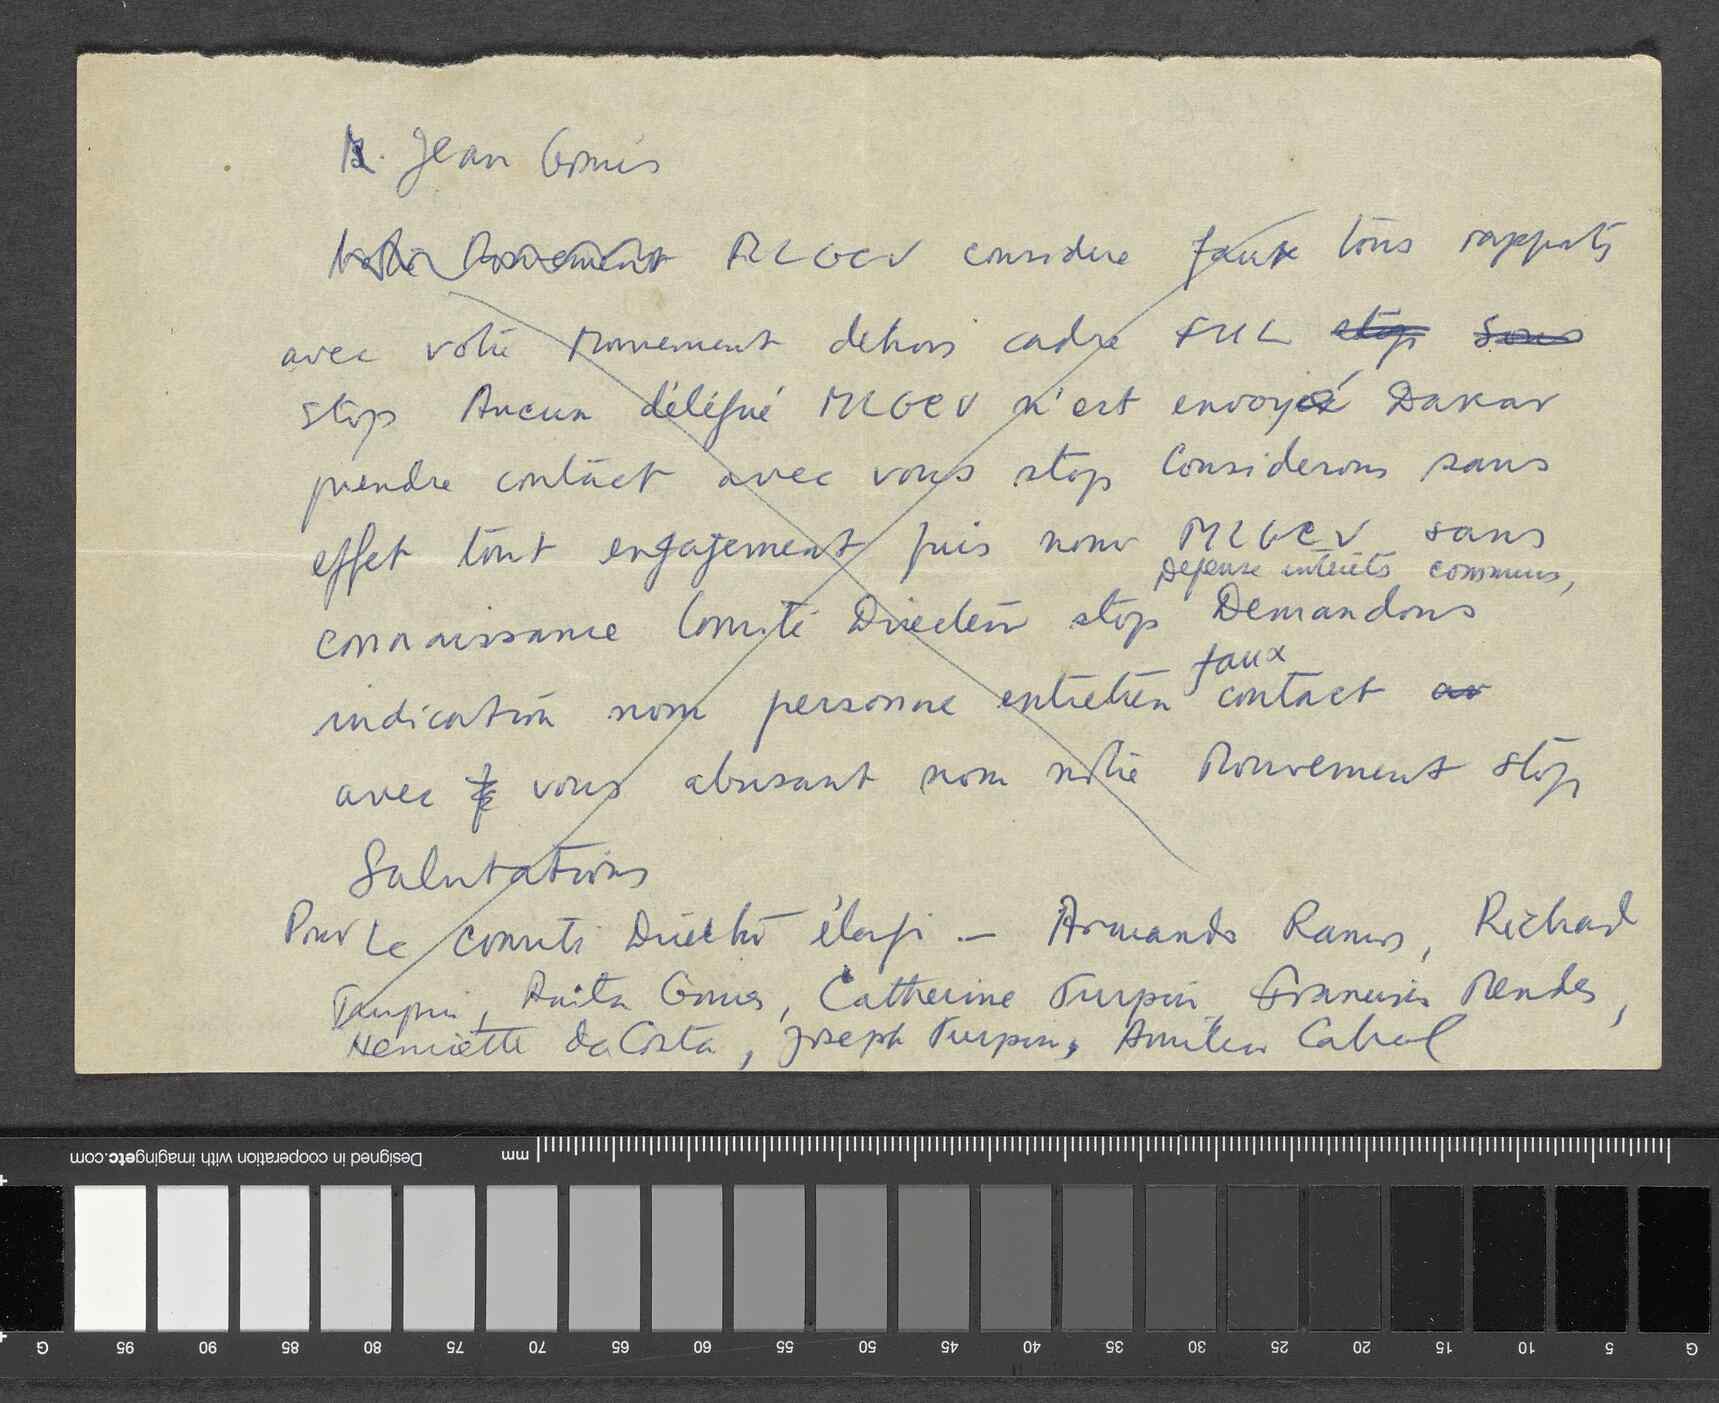 M. Jean Gomis
Notre Mouvement MLGCV considere faux tous rapports
avec votre Mouvement dehors cadre FUL stop Sous
stop Aucun délégué MLGCV n'est envoyé Dakar
prendre contact avec vous stop Considerons sans
effet tout engagement pris nom MLGCV sans
Defense intérêts communs,
connaissance Comité Directeur stop Demandons
faux
indication nom personne entretien contact av
avec vous abusant nom notre Mouvement stop
Salutations
Pour Le Comité Directeur élargi — Armando Ramos, Richard
Turpin, Anita Gomes, Catherine Turpin, Francisco Mendes,
Henriette da Costa, Joseph Turpin, Amilcar Cabral
Designed in cooperation with imagingetc.com
mm
G 95 90 85 80 75 70 65 60 55 50 45 40 35 30 25 20 15 10 5 G